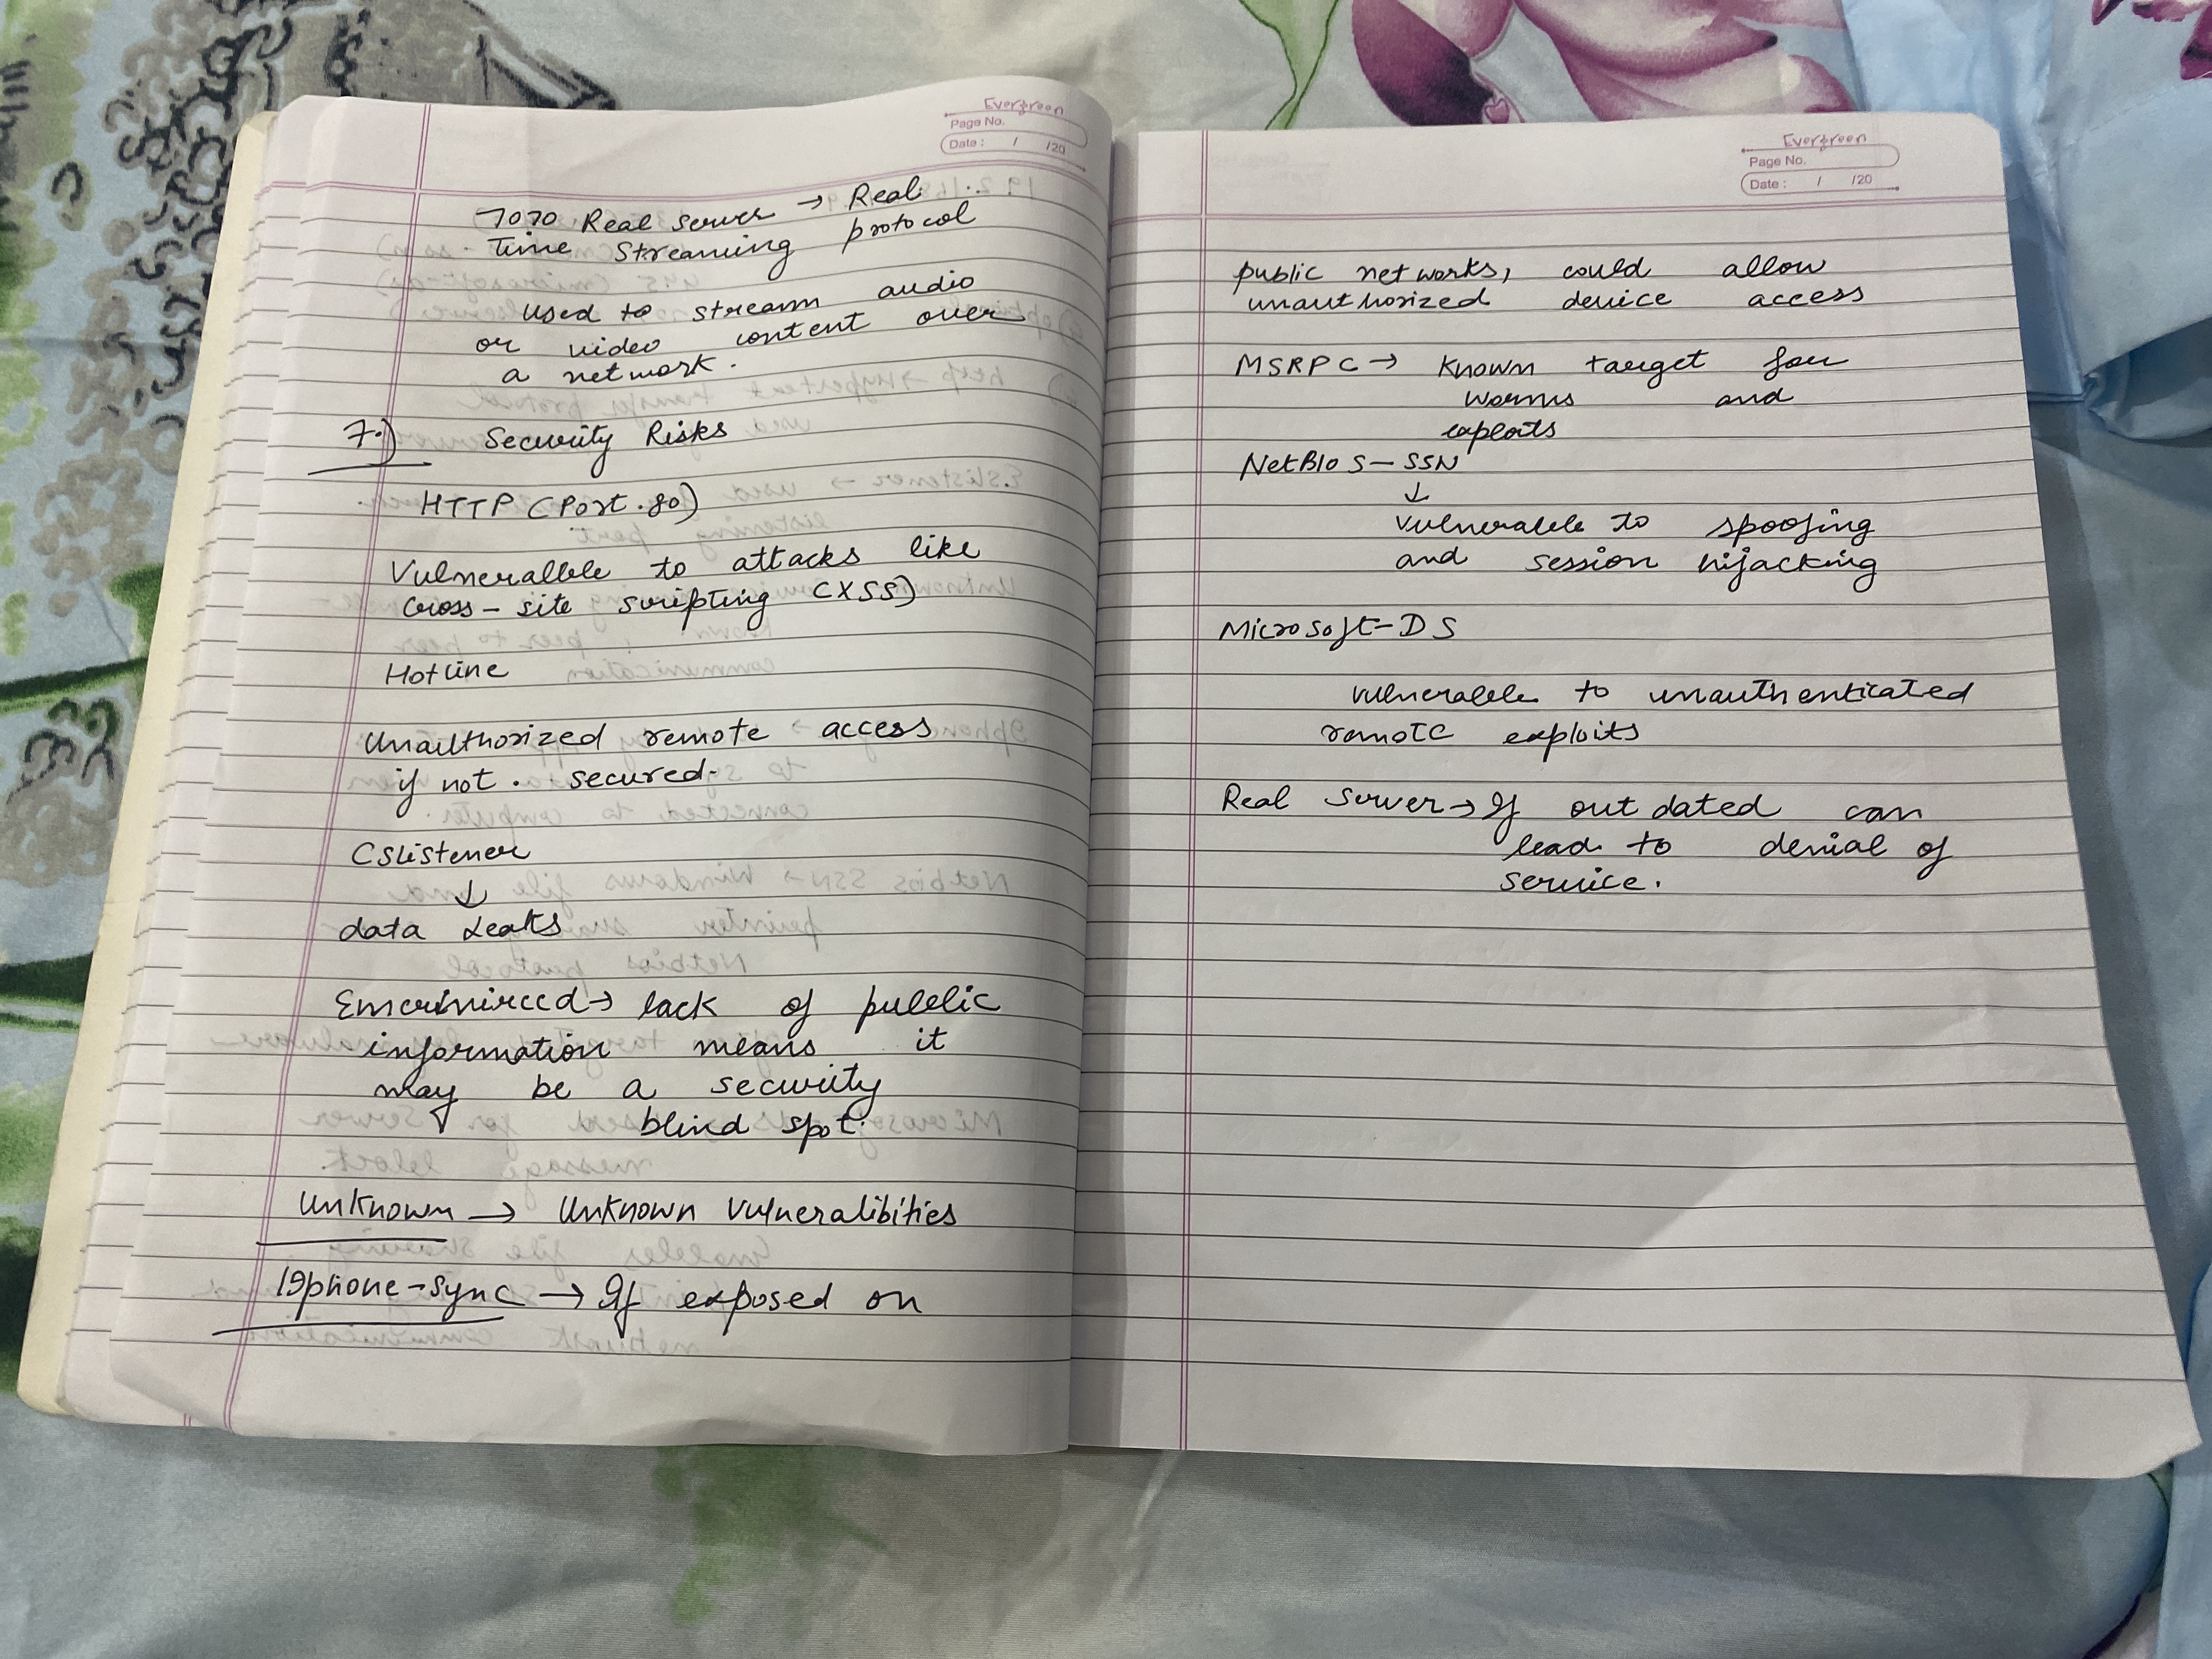 Evergreen
Page No.
Date : / /20
7070 Real server → Real
Time Streaming protocol
used to stream audio
or video content over
a network.
7.) Security Risks
HTTP (Port 80)
Vulnerable to attacks like
cross-site scripting (XSS)
Hotline
Unauthorized remote access
if not secured.
Cslistener
↓
data leaks
→ lack of public
information means it
may be a security
blind spot.
Unknown → Unknown Vulneralibities
iphone-sync → If exposed on
Evergreen
Page No.
Date : / /20
public networks, could allow
unauthorized device access
MSRPC → Known target for
worms and
exploits
NetBIOS-SSN
↓
Vulnerable to spoofing
and session hijacking
Microsoft-DS
Vulnerable to unauthenticated
remote exploits
Real server → If outdated can
lead to denial of
service.